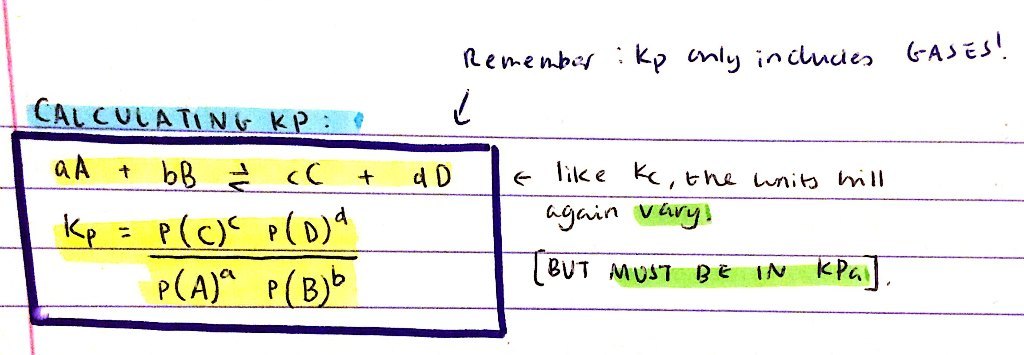 Remember : Kp only includes GASES!
CALCULATING KP :
aA + bB ⇌ cC + dD
← like Kc, the units will
again vary!
Kp = p(C)ᶜ p(D)ᵈ
p(A)ᵃ p(B)ᵇ
[BUT MUST BE IN KPa].